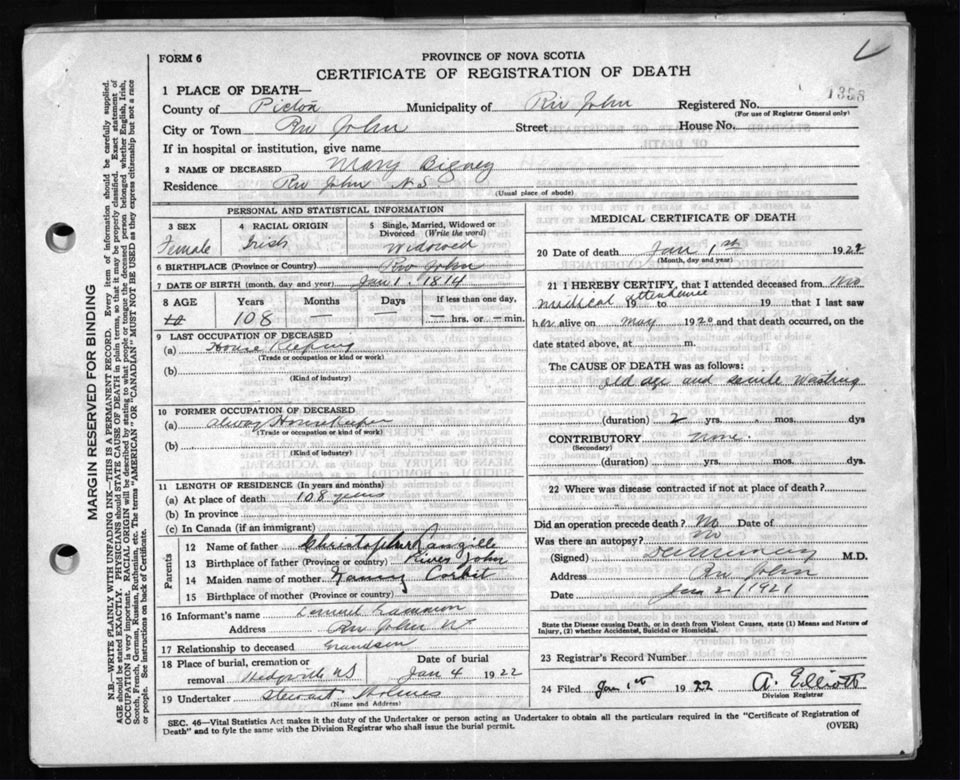 FORM 6
PROVINCE OF NOVA SCOTIA
CERTIFICATE OF REGISTRATION OF DEATH
1 PLACE OF DEATH—
County of Pictou Municipality of Riv John Registered No. 1358
(For use of Registrar General only)
City or Town Riv John Street House No.
If in hospital or institution, give name
2 NAME OF DECEASED Mary Bigney
Residence Riv John N.S
(Usual place of abode)
PERSONAL AND STATISTICAL INFORMATION
3 SEX 4 RACIAL ORIGIN 5 Single, Married, Widowed or Divorced (Write the word)
Female Irish Widowed
6 BIRTHPLACE (Province or Country) Riv John
7 DATE OF BIRTH (month, day and year) Jan 1. 1814
8 AGE Years Months Days If less than one day,
108 — — — hrs. or — min.
9 LAST OCCUPATION OF DECEASED
(a) House Keeping
(Trade or occupation or kind or work)
(b)
(Kind of industry)
10 FORMER OCCUPATION OF DECEASED
(a) Alway House Keeper
(Trade or occupation or kind of work)
(b)
(Kind of industry)
11 LENGTH OF RESIDENCE (In years and months)
(a) At place of death 108 years
(b) In province
(c) In Canada (if an immigrant)
Parents
12 Name of father Christopher Langille
13 Birthplace of father (Province or country) River John
14 Maiden name of mother Nancy Corbit
15 Birthplace of mother (Province or country)
16 Informant's name
Address Riv John
17 Relationship to deceased Grandson
18 Place of burial, cremation or removal Hedgville NS Date of burial Jan 4 1922
19 Undertaker Stewart Holmes
(Name and Address)
MEDICAL CERTIFICATE OF DEATH
20 Date of death Jan 1st 192
(Month, day and year)
21 I HEREBY CERTIFY, that I attended deceased from No
medical attendance 19 to 19 that I last saw
her alive on May 1920 and that death occurred, on the
date stated above, at m.
The CAUSE OF DEATH was as follows:
old age and senile Wasting
(duration) 2 yrs. mos. dys
CONTRIBUTORY none.
(Secondary)
(duration) yrs. mos. dys.
22 Where was disease contracted if not at place of death?
Did an operation precede death? No Date of
Was there an autopsy? No
(Signed) M.D.
Address Riv John
Date Jan 2 1921
State the Disease causing Death, or in death from Violent Causes, state (1) Means and Nature of Injury, (2) whether Accidental, Suicidal or Homicidal.
23 Registrar's Record Number
24 Filed Jan 1st 1922 A. Elliott
Division Registrar
SEC. 46—Vital Statistics Act makes it the duty of the Undertaker or person acting as Undertaker to obtain all the particulars required in the "Certificate of Registration of
Death" and to fyle the same with the Division Registrar who shall issue the burial permit.
(OVER)
MARGIN RESERVED FOR BINDING
N.B.—WRITE PLAINLY WITH UNFADING INK—THIS IS A PERMANENT RECORD. Every item of information should be carefully supplied.
AGE should be stated EXACTLY. PHYSICIANS should STATE CAUSE OF DEATH in plain terms, so that it may be properly classified. Exact statement of
OCCUPATION is very important. RACIAL ORIGIN will be described by stating to what people or tongue the deceased person belonged whether English, Irish,
Scotch, French, German, Russian, Ruthenian, etc. The terms "AMERICAN" OR "CANADIAN" MUST NOT BE USED as they express citizenship but not a race
or people. See instructions on back of Certificate.